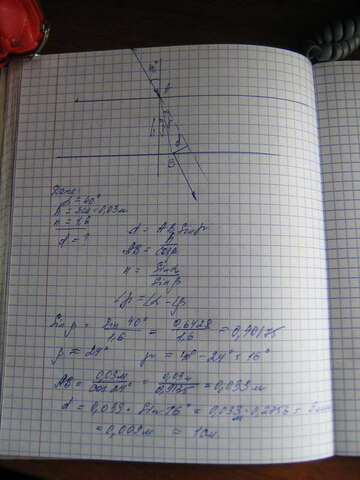 α = 40°
h = 3см = 0,03м
n = 1,6
d = ?
d = AB sin
AB = h / cos β
n = sin α / sin β
Sin β = Sin 40° / 1,6 = 0,6428 / 1,6 = 0,40175
β ≈ 24° = 40° - 24° = 16°
AB = 0,03м / cos 24° = 0,03м / 0,9135 = 0,033 м
d = 0,033 · Sin 16° = 0,033 · 0,2756 =
= 0,009м = 1см.